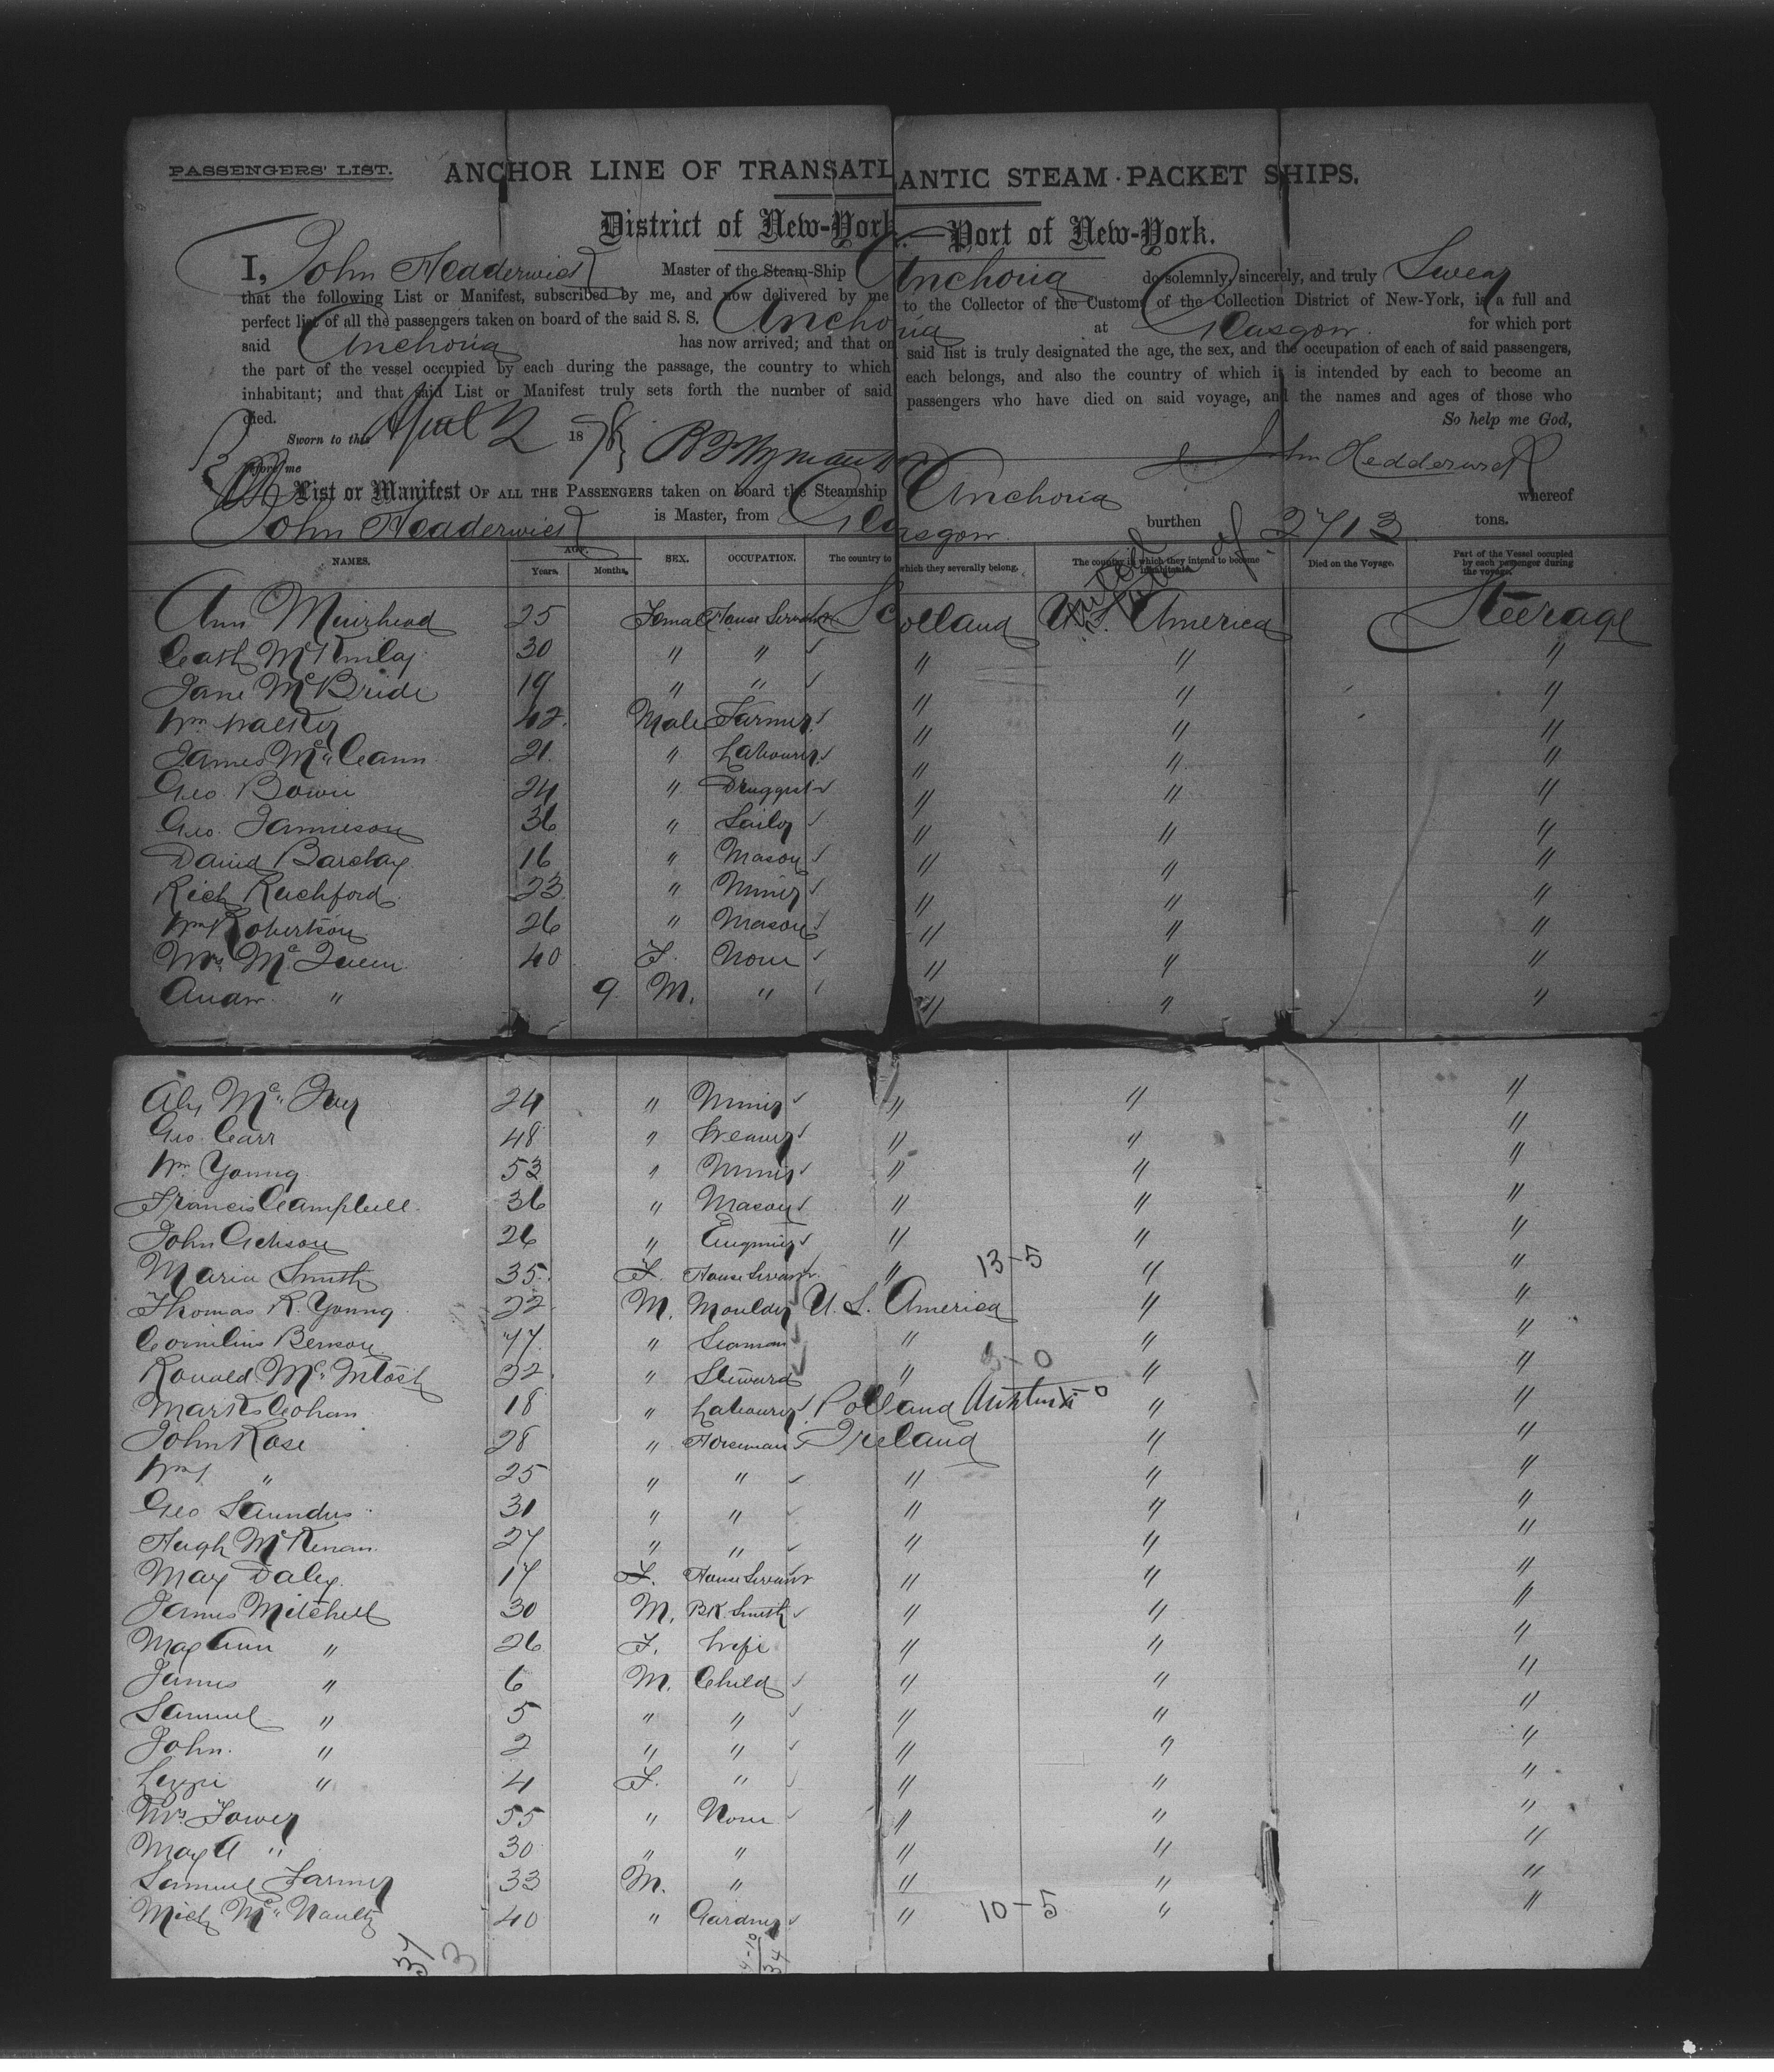 PASSENGERS' LIST. ANCHOR LINE OF TRANSATLANTIC STEAM PACKET SHIPS.
District of New-York.—Port of New-York.
I, John Hedderwick Master of the Steam-Ship Anchoria do solemnly, sincerely, and truly Swear
that the following List or Manifest, subscribed by me, and now delivered by me to the Collector of the Customs of the Collection District of New-York, is a full and
perfect list of all the passengers taken on board of the said S. S. Anchoria at Glasgow. for which port
said Anchoria has now arrived; and that on said list is truly designated the age, the sex, and the occupation of each of said passengers,
the part of the vessel occupied by each during the passage, the country to which each belongs, and also the country of which it is intended by each to become an
inhabitant; and that said List or Manifest truly sets forth the number of said passengers who have died on said voyage, and the names and ages of those who
died. So help me God,
Sworn to this April 2 1878
before me John Hedderwick
List or Manifest OF ALL THE PASSENGERS taken on board the Steamship Anchoria whereof
John Hedderwick is Master, from Glasgow. burthen of 2713 tons.
NAMES. AGE. Years. Months. SEX. OCCUPATION. The country to which they severally belong. The country of which they intend to become inhabitants. Died on the Voyage. Part of the Vessel occupied by each passenger during the voyage.
Ann Muirhead 25 Female House Servant Scotland U.S. America Steerage
Cath McKinlay 30 " " " " "
Jane McBride 19 " " " " "
Wm Walker 42 Male Farmer " " "
James McCann 21 " Labourer " " "
Geo. Bowie 24 " Druggist " " "
Geo. Jamieson 36 " Sailor " " "
David Barclay 16 " Mason " " "
Rich Rachford 23 " Miner " " "
Wm Robertson 26 " Mason " " "
Mrs McQueen 40 F. None " " "
Andw " 9 M. " " " "
24 " Miner " " "
Geo. Carr 48 " Weaver " " "
Wm Young 53 " Miner " " "
Francis Campbell 36 " Mason " " "
John Acheson 26 " Engineer " " "
Maria Smith 35 F. House Servant " 13-5 " "
Thomas R. Young 22 M. Moulder U. S. America " "
Cornilius Benson 47 " Seaman " " "
Ronald McIntosh 22 " Steward " " "
Mark Cohan 18 " Labourer Polland " "
John Rose 28 " Horseman Ireland " "
Wm " 25 " " " " "
Geo Saunders 31 " " " " "
Hugh McKenan 27 " " " " "
May Daley 17 F. House Servant " " "
James Mitchell 30 M. Bk. Smith " " "
May Ann " 26 F. Wife " " "
James " 6 M. Child " " "
Samuel " 5 " " " " "
John. " 2 " " " " "
Lizzie " 4 F. " " " "
Mrs Tower 55 " None " " "
May A " 30 " " " " "
Samuel Farmer 33 M. " " " "
Mich McNaulty 40 " Gardner " 10-5 " "
37 3 4-10 34